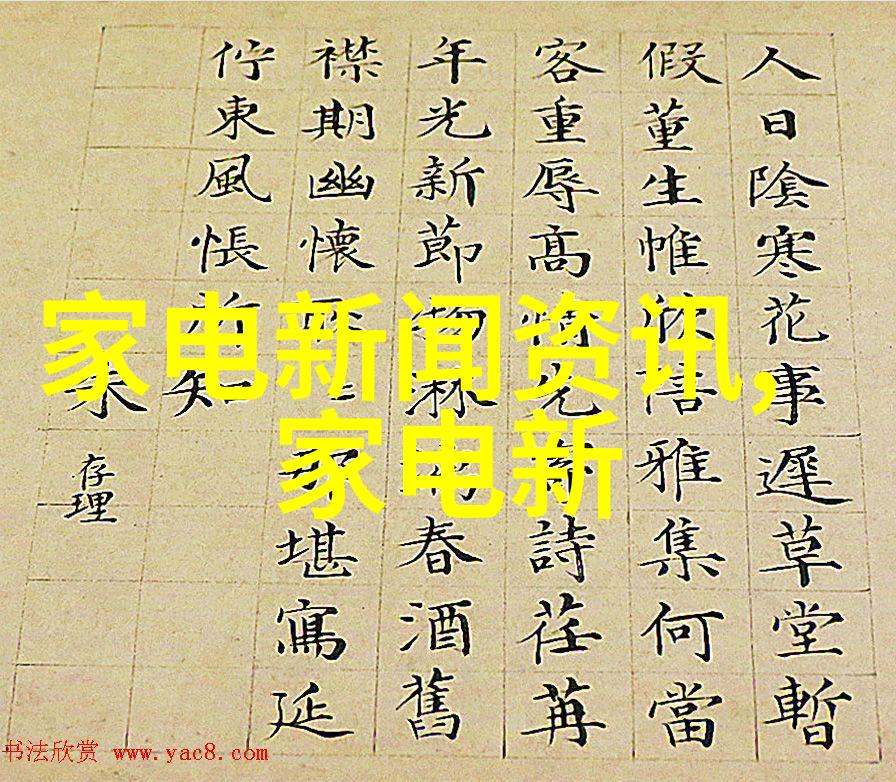 人日陰寒花事遲草堂暫
假董生帷雅集何當
客重辱高情先詩荏苒
年光新節物淋春酒舊
襟期幽懷堪寫延
佇東風悵知
存理
家电新闻资讯,
家电新
书法欣赏 www.yac8.com